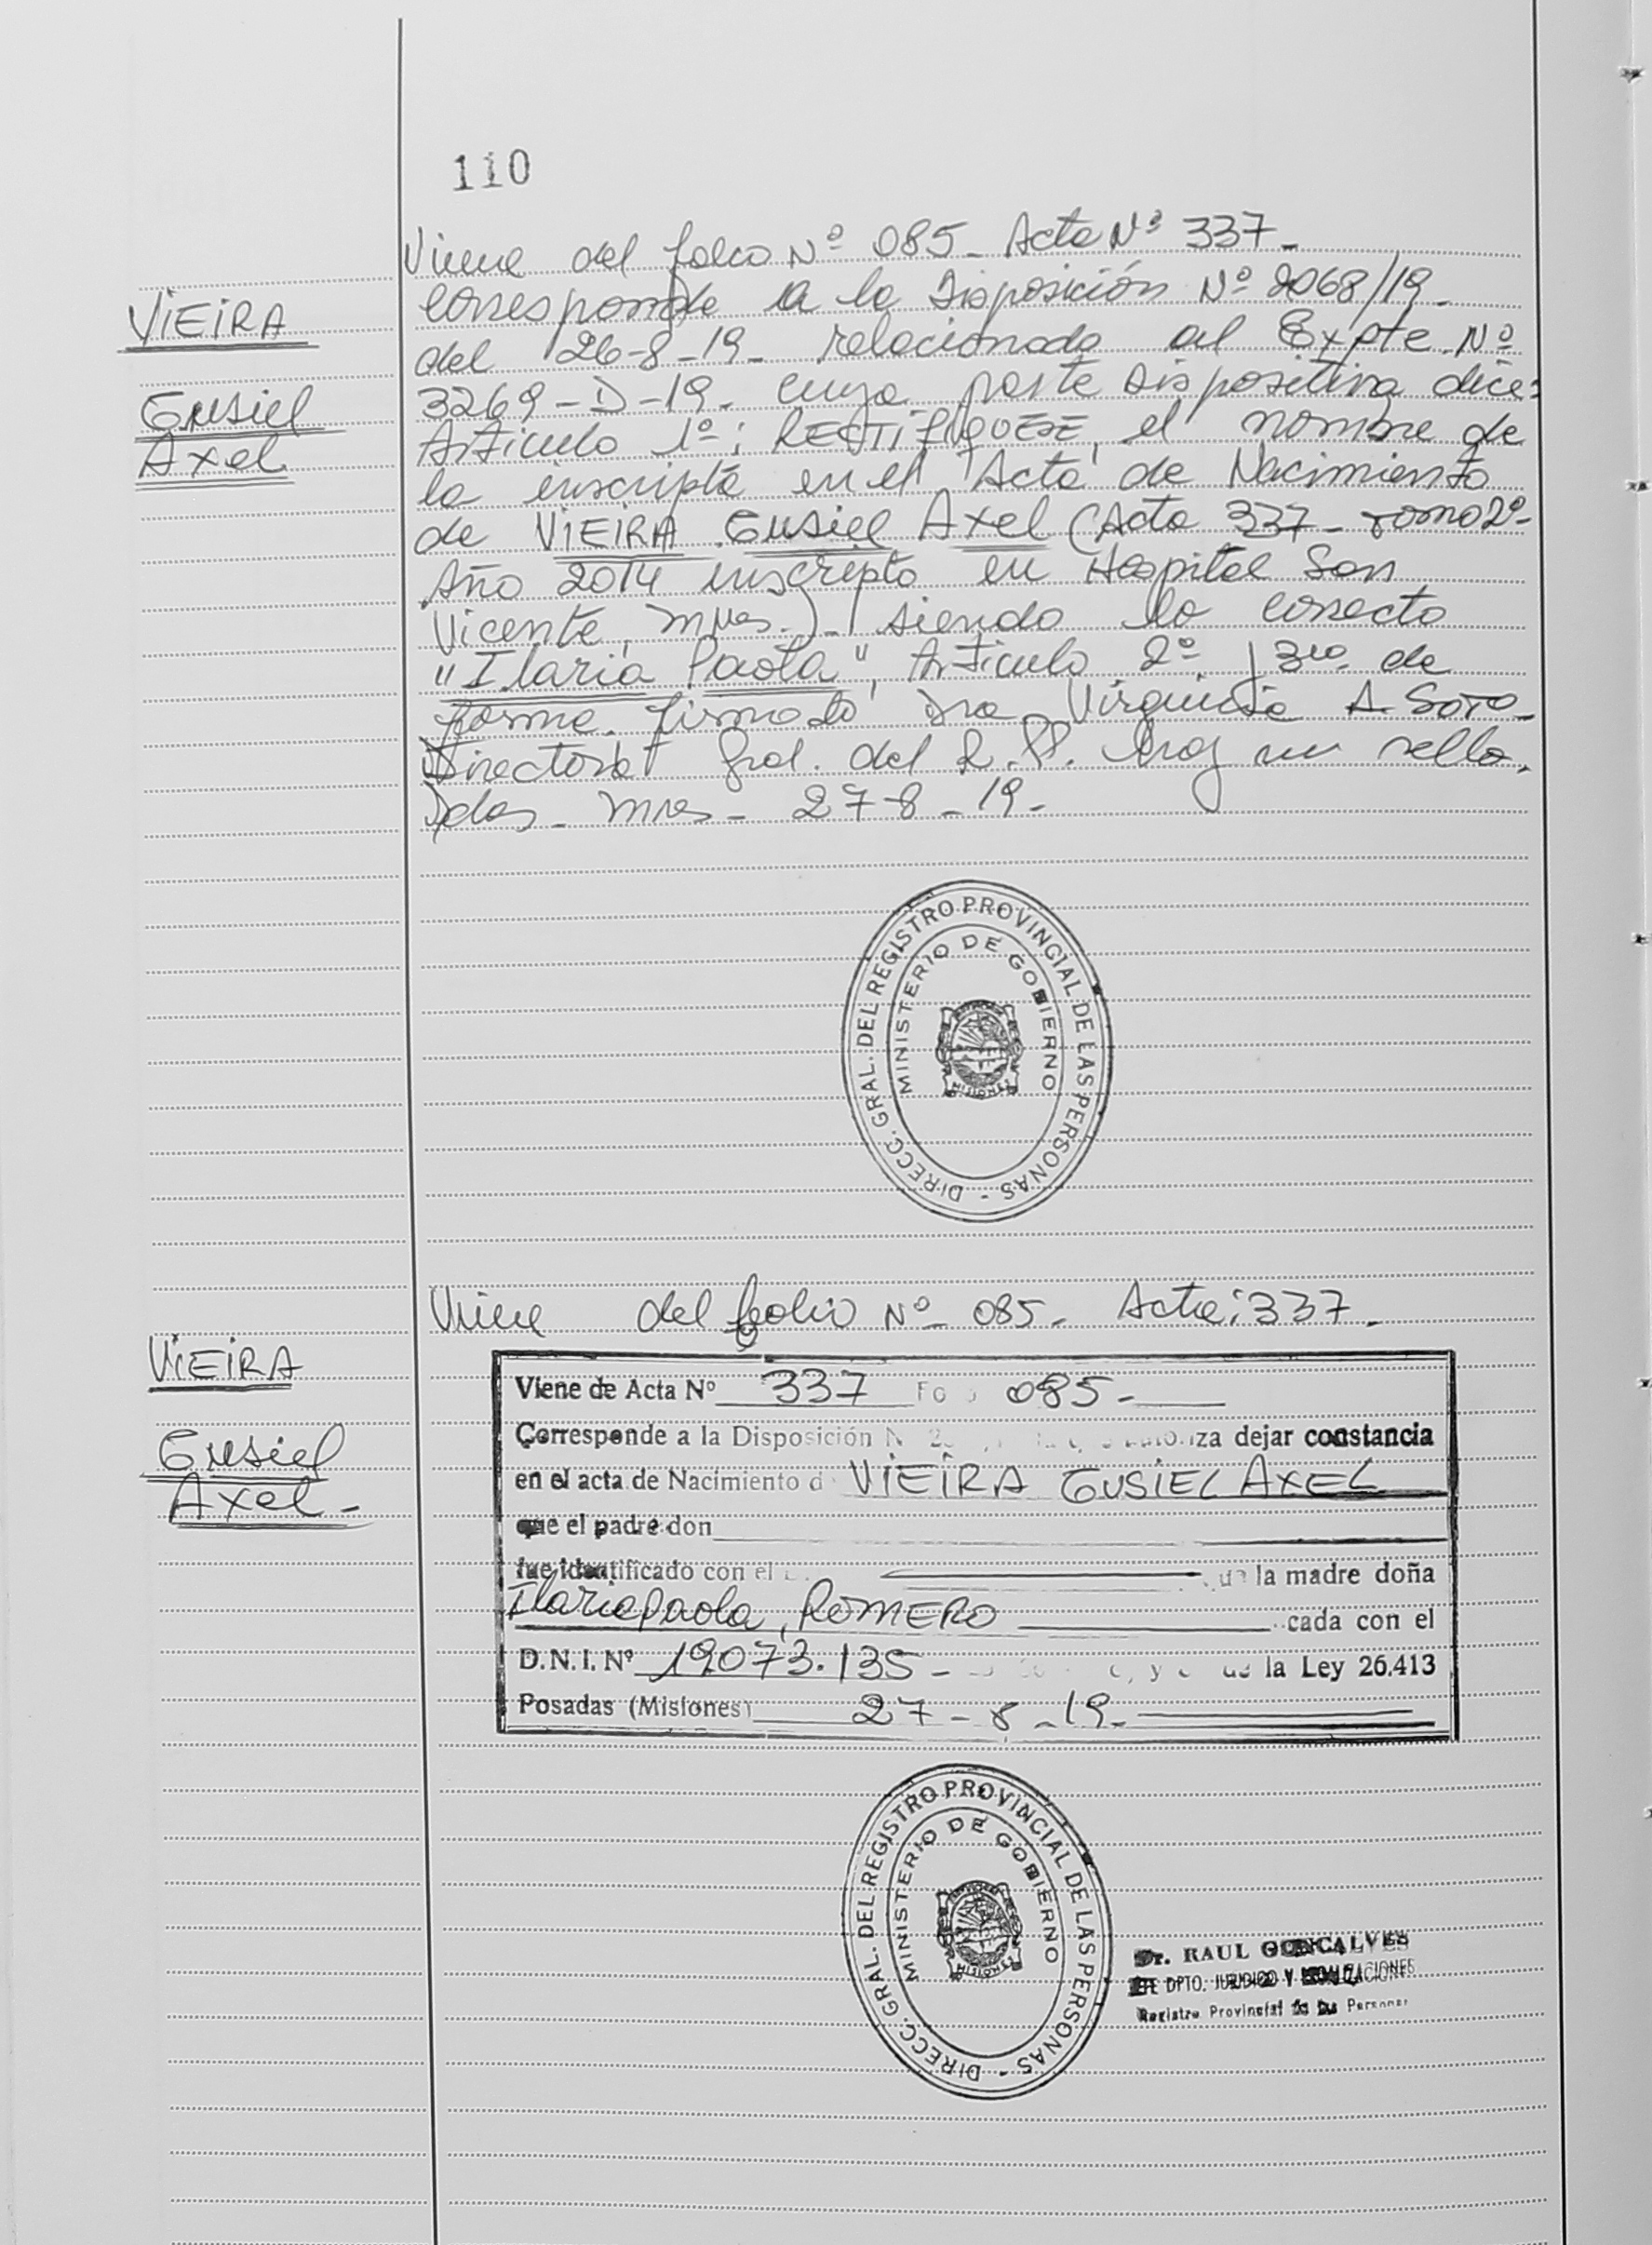 110
Viene del folio Nº 085_ Acta Nº 337_
VIEIRA
Gusiel
Axel
corresponde a la Disposición Nº 2068/19_
del 26-8-19_ relacionado al Expte. Nº
3269-D-19_ cuya parte dispositiva dice:
Artículo 1º: RECTIFIQUESE, el nombre de
la inscripta en el Acta de Nacimiento
de VIEIRA Gusiel Axel (Acta 337_ Tomo 2º_
Año 2014 inscripto en Hospital San
Vicente, Mnes.)_ siendo lo correcto
"Ilaria Paola", Artículo 2º 3ro de
forma. firmado Dra Virginia A. Soto_
Directora Gral. del R.P.P. Hay un sello.
Pdas_ Mnes_ 27-8_19_
DIRECC. GRAL. DEL REGISTRO PROVINCIAL DE LAS PERSONAS -
MINISTERIO DE GOBIERNO
MISIONES
Viene del folio Nº 085_ Acta: 337_
VIEIRA
Gusiel
Axel_
Viene de Acta Nº 337 Fo 085-
Corresponde a la Disposición N iza dejar constancia
en el acta de Nacimiento d VIEIRA GUSIEL AXEL
que el padre don
fue identificado con el la madre doña
Ilaria Paola, ROMERO cada con el
D.N.I. Nº 19073.135_ la Ley 26.413
Posadas (Misiones) 27-8_19_
DIRECC. GRAL. DEL REGISTRO PROVINCIAL DE LAS PERSONAS -
MINISTERIO DE GOBIERNO
MISIONES
Dr. RAUL GONCALVES
JEFE DPTO. JURIDICO Y
Registro Provincial de las Personas